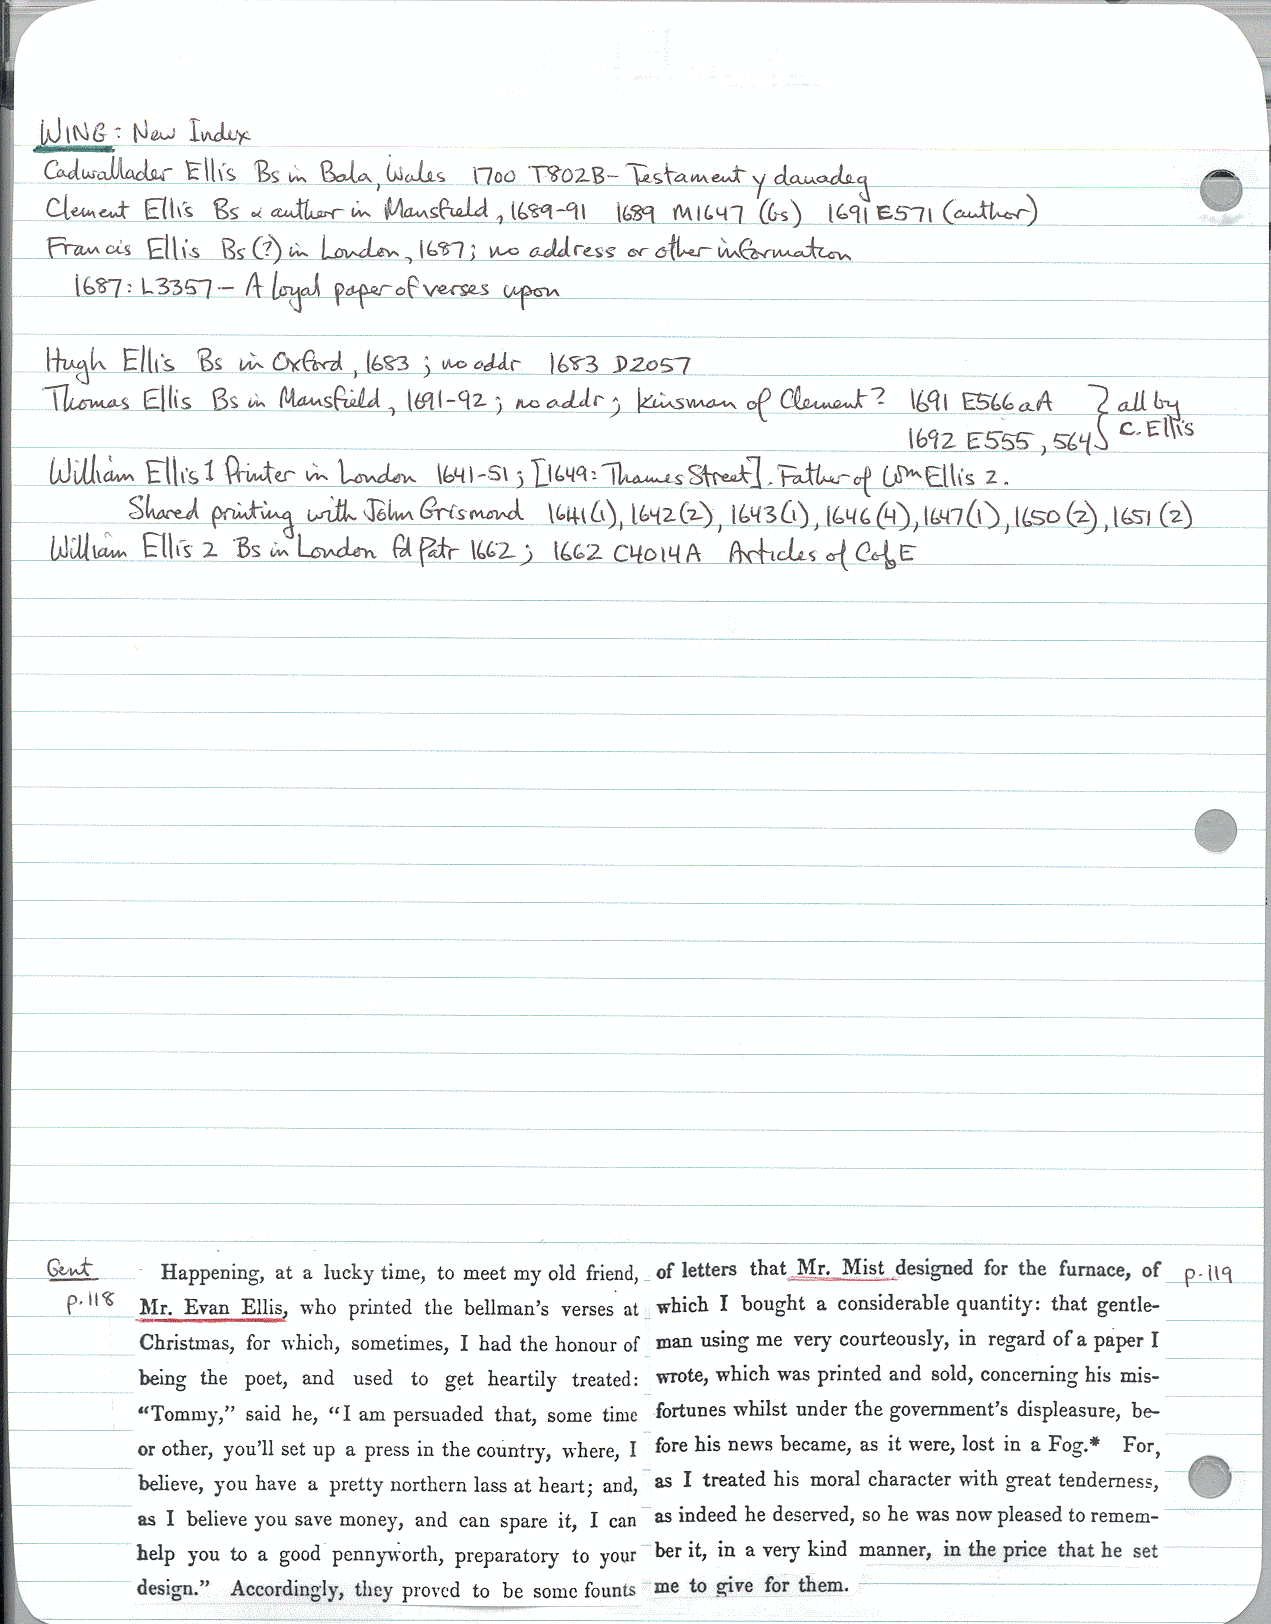 WING: New Index
Cadwallader Ellis Bs in Bala, Wales 1700 T802B - Testament y dauadeg
Clement Ellis Bs & author in Mansfield, 1689-91 1689 M1647 (bs) 1691 E571 (author)
Francis Ellis Bs (?) in London, 1687; no address or other information
1687: L3357 - A loyal paper of verses upon
Hugh Ellis Bs in Oxford, 1683; no addr 1683 D2057
Thomas Ellis Bs in Mansfield, 1691-92; no addr; kinsman of Clement? 1691 E566aA } all by
1692 E555, 564 C. Ellis
William Ellis 1 Printer in London 1641-51; [1649: Thames Street]. Father of Wm Ellis 2.
Shared printing with John Grismond 1641(1), 1642(2), 1643(1), 1646(4), 1647(1), 1650(2), 1651(2)
William Ellis 2 Bs in London fd Patr 1662; 1662 C4014A Articles of CofE
Gent
p.118
Happening, at a lucky time, to meet my old friend,
Mr. Evan Ellis, who printed the bellman's verses at
Christmas, for which, sometimes, I had the honour of
being the poet, and used to get heartily treated:
"Tommy," said he, "I am persuaded that, some time
or other, you'll set up a press in the country, where, I
believe, you have a pretty northern lass at heart; and,
as I believe you save money, and can spare it, I can
help you to a good pennyworth, preparatory to your
design." Accordingly, they proved to be some founts
of letters that Mr. Mist designed for the furnace, of
p.119
which I bought a considerable quantity: that gentle-
man using me very courteously, in regard of a paper I
wrote, which was printed and sold, concerning his mis-
fortunes whilst under the government's displeasure, be-
fore his news became, as it were, lost in a Fog.* For,
as I treated his moral character with great tenderness,
as indeed he deserved, so he was now pleased to remem-
ber it, in a very kind manner, in the price that he set
me to give for them.